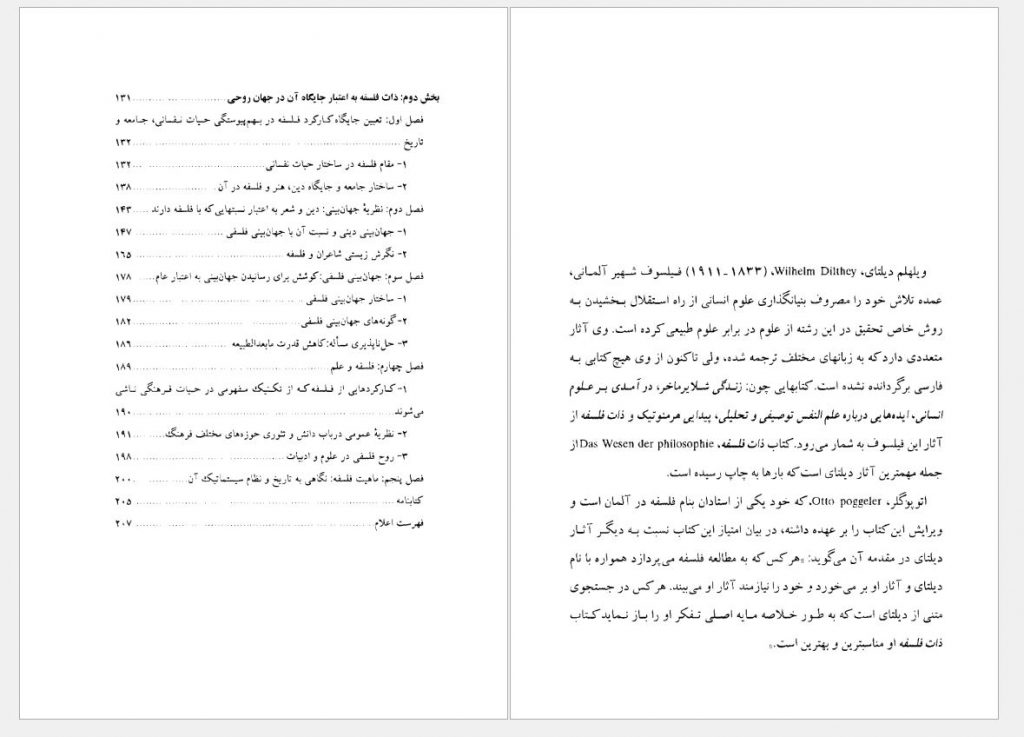 ویلهلم دیلتای، Wilhelm Dilthey، (۱۸۳۳ـ۱۹۱۱) فیلسوف شهیر آلمانی،
عمده تلاش خود را مصروف بنیانگذاری علوم انسانی از راه استقلال بخشیدن به
روش خاص تحقیق در این رشته از علوم در برابر علوم طبیعی کرده است. وی آثار
متعددی دارد که به زبانهای مختلف ترجمه شده، ولی تاکنون از وی هیچ کتابی به
فارسی برگردانده نشده است. کتابهایی چون: زندگی شلایرماخر، درآمدی بر علوم
انسانی، ایده‌هایی درباره علم النفس توصیفی و تحلیلی، پیدایی هرمنوتیک و ذات فلسفه از
آثار این فیلسوف به شمار می‌رود. کتاب ذات فلسفه، Das Wesen der philosophie از
جمله مهمترین آثار دیلتای است که بارها به چاپ رسیده است.
اتو پوگلر، Otto poggeler، که خود یکی از استادان بنام فلسفه در آلمان است و
ویرایش این کتاب را بر عهده داشته، در بیان امتیاز این کتاب نسبت به دیگر آثار
دیلتای در مقدمه آن می‌گوید: «هر کس که به مطالعه فلسفه می‌پردازد همواره با نام
دیلتای و آثار او بر می‌خورد و خود را نیازمند آثار او می‌بیند. هر کس در جستجوی
متنی از دیلتای است که به طور خلاصه مایه اصلی تفکر او را باز نماید کتاب
ذات فلسفه او مناسبترین و بهترین است.»
بخش دوم: ذات فلسفه به اعتبار جایگاه آن در جهان روحی ........ ۱۳۱
فصل اول: تعیین جایگاه کارکرد فلسفه در بهم‌پیوستگی حیات نفسانی، جامعه و
تاریخ ........ ۱۳۲
۱- مقام فلسفه در ساختار حیات نفسانی ........ ۱۳۲
۲- ساختار جامعه و جایگاه دین، هنر و فلسفه در آن ........ ۱۳۸
فصل دوم: نظریهٔ جهان‌بینی: دین و شعر به اعتبار نسبتهایی که با فلسفه دارند ..... ۱۴۳
۱- جهان‌بینی دینی و نسبت آن با جهان‌بینی فلسفی ........ ۱۴۷
۲- نگرش زیستی شاعران و فلسفه ........ ۱۶۵
فصل سوم: جهان‌بینی فلسفی: کوشش برای رسانیدن جهان‌بینی به اعتبار عام ..... ۱۷۸
۱- ساختار جهان‌بینی فلسفی ........ ۱۷۹
۲- گونه‌های جهان‌بینی فلسفی ........ ۱۸۲
۳- حل‌ناپذیری مسأله: کاهش قدرت مابعدالطبیعه ........ ۱۸۶
فصل چهارم: فلسفه و علم ........ ۱۸۹
۱- کارکردهایی از فلسفه که از تکنیک مفهومی در حیات فرهنگی ناشی
می‌شوند ........ ۱۹۰
۲- نظریهٔ عمومی درباب دانش و تئوری حوزه‌های مختلف فرهنگ ........ ۱۹۱
۳- روح فلسفی در علوم و ادبیات ........ ۱۹۸
فصل پنجم: ماهیت فلسفه: نگاهی به تاریخ و نظام سیستماتیک آن ........ ۲۰۰
کتابنامه ........ ۲۰۵
فهرست اعلام ........ ۲۰۷